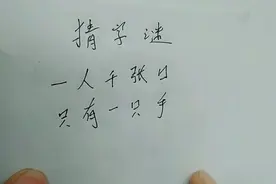 猜字谜
一人千张口
只有一只手